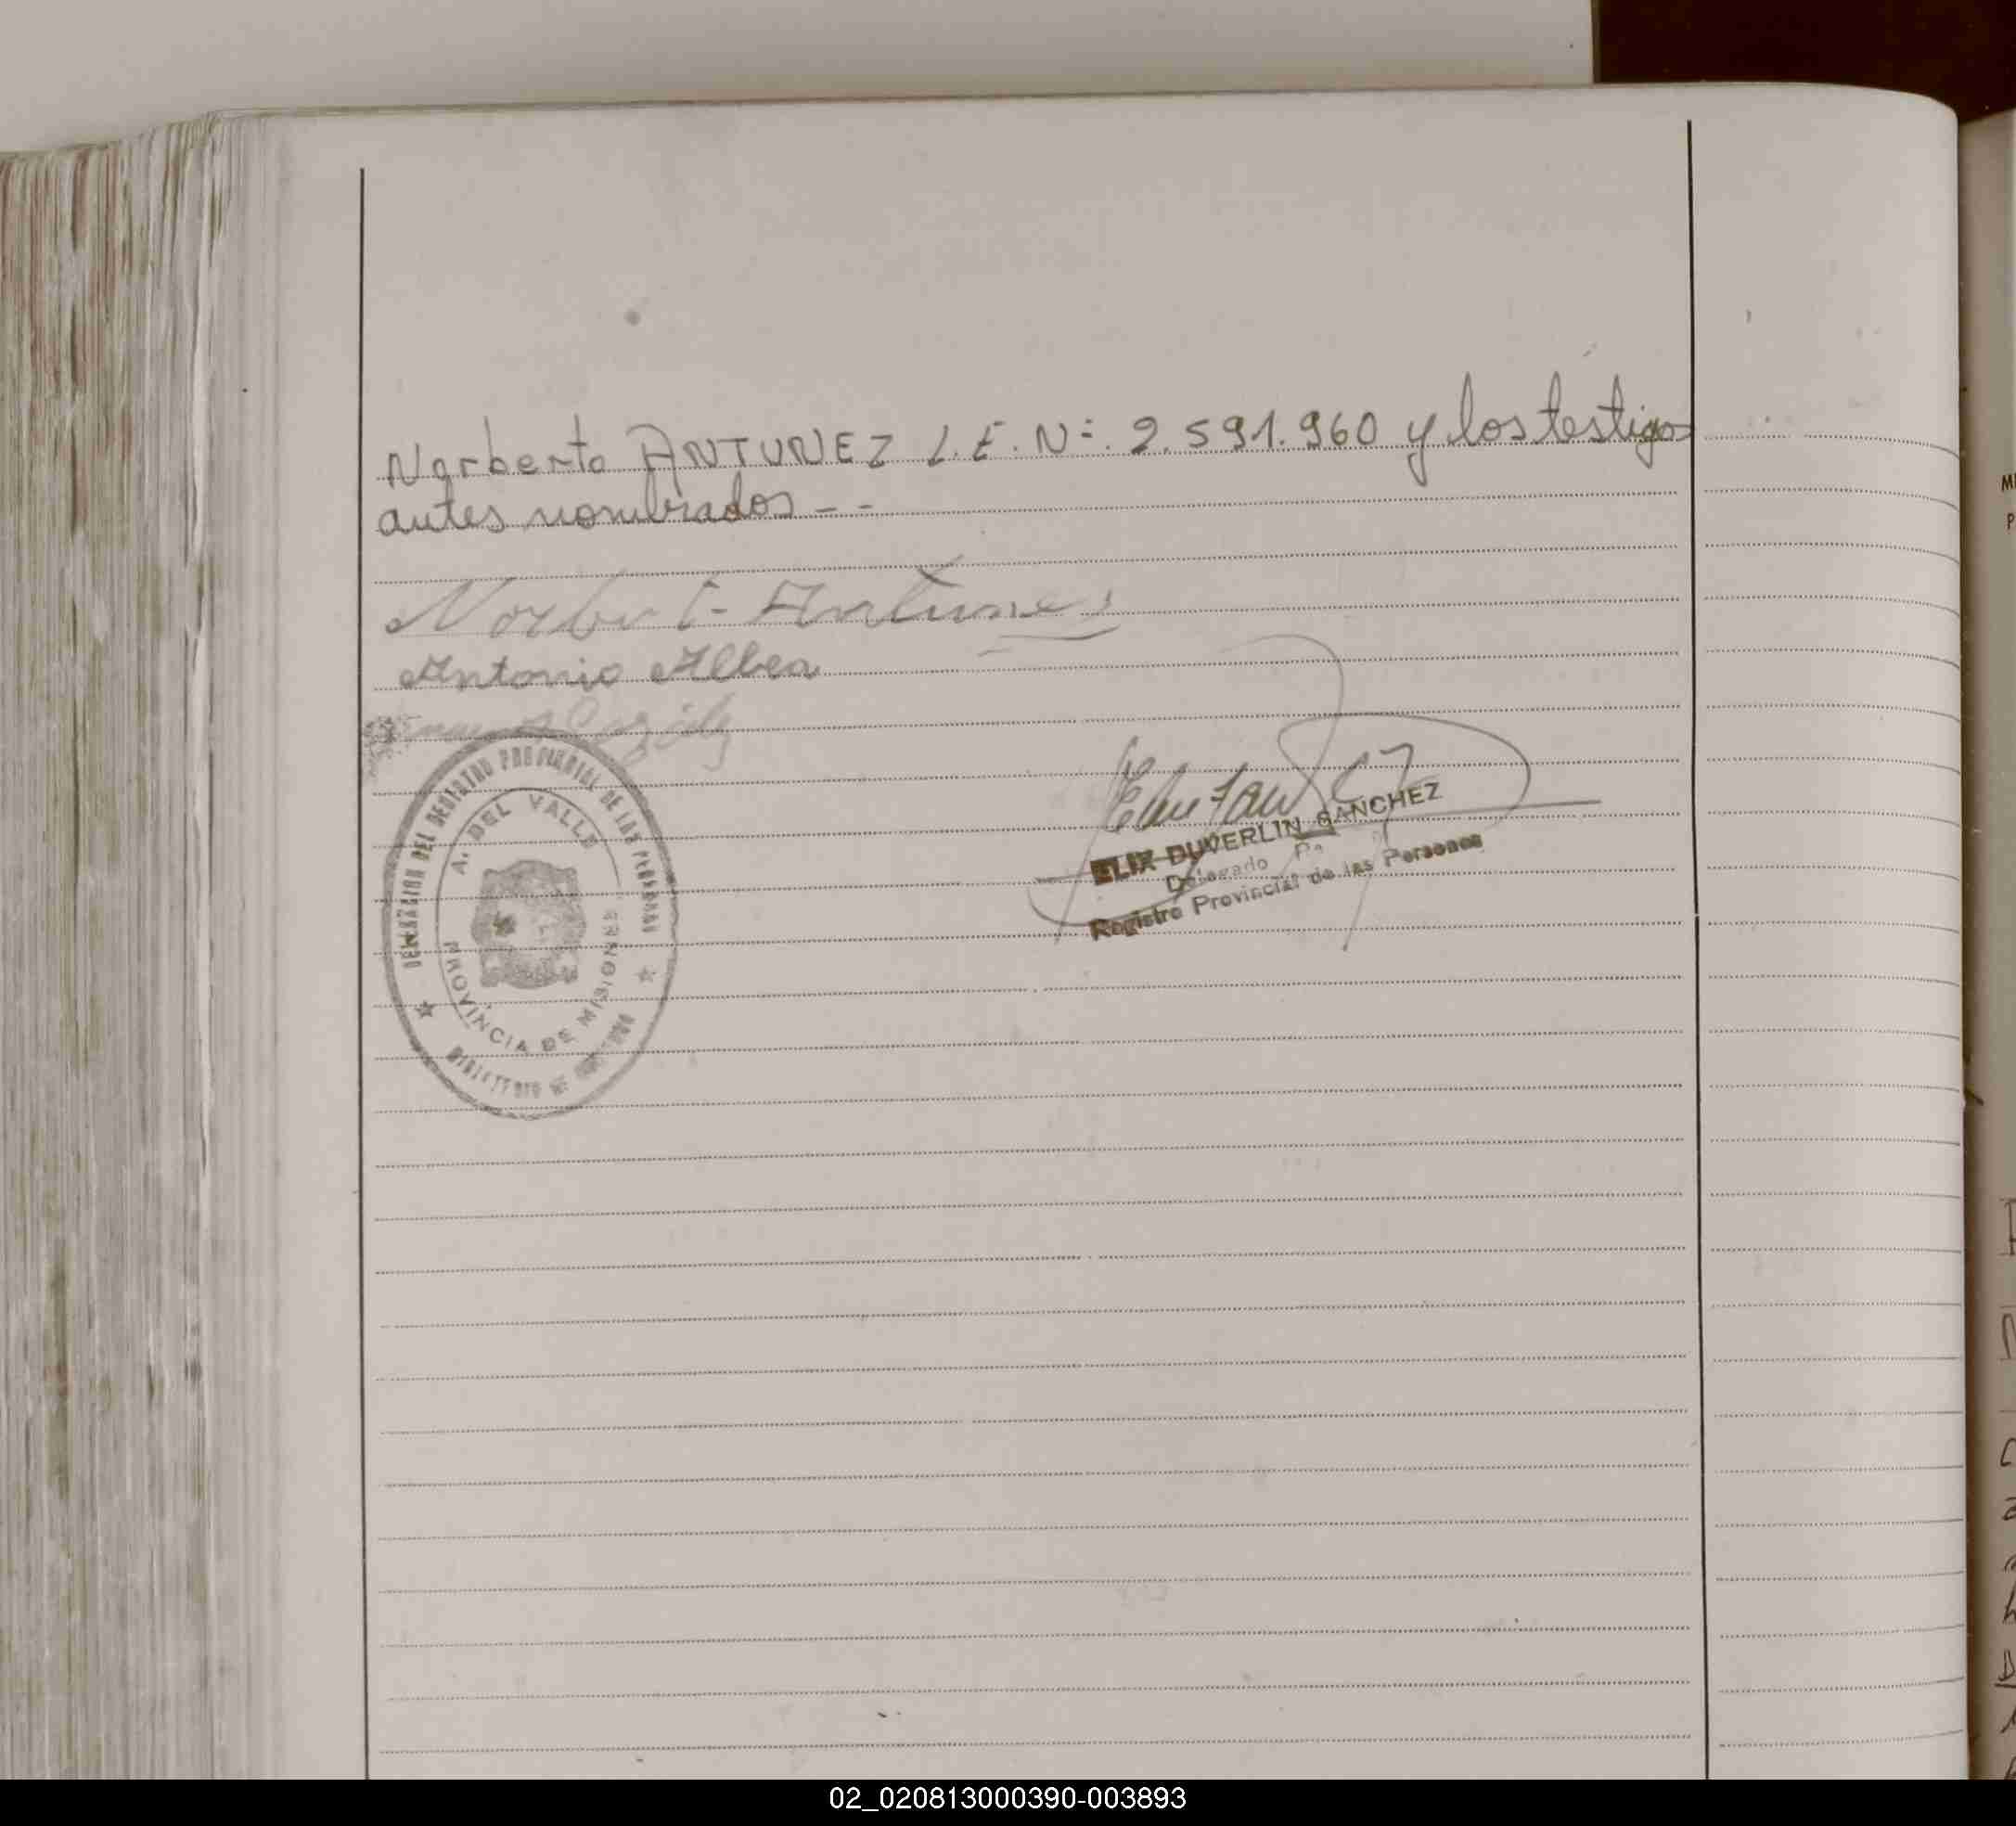 Norberto ANTUNEZ L.E. Nº: 2.591.960 y los testigos
antes nombrados - -
Norbert- Antunes
Antonio Albea
DELEGACION DEL REGISTRO PROVINCIAL DE LAS PERSONAS
A. DEL VALLE
PROVINCIA DE MISIONES
MINISTERIO DE
ELIX DUVERLIN SANCHEZ
Delegado
Registro Provincial de las Personas
02_020813000390-003893